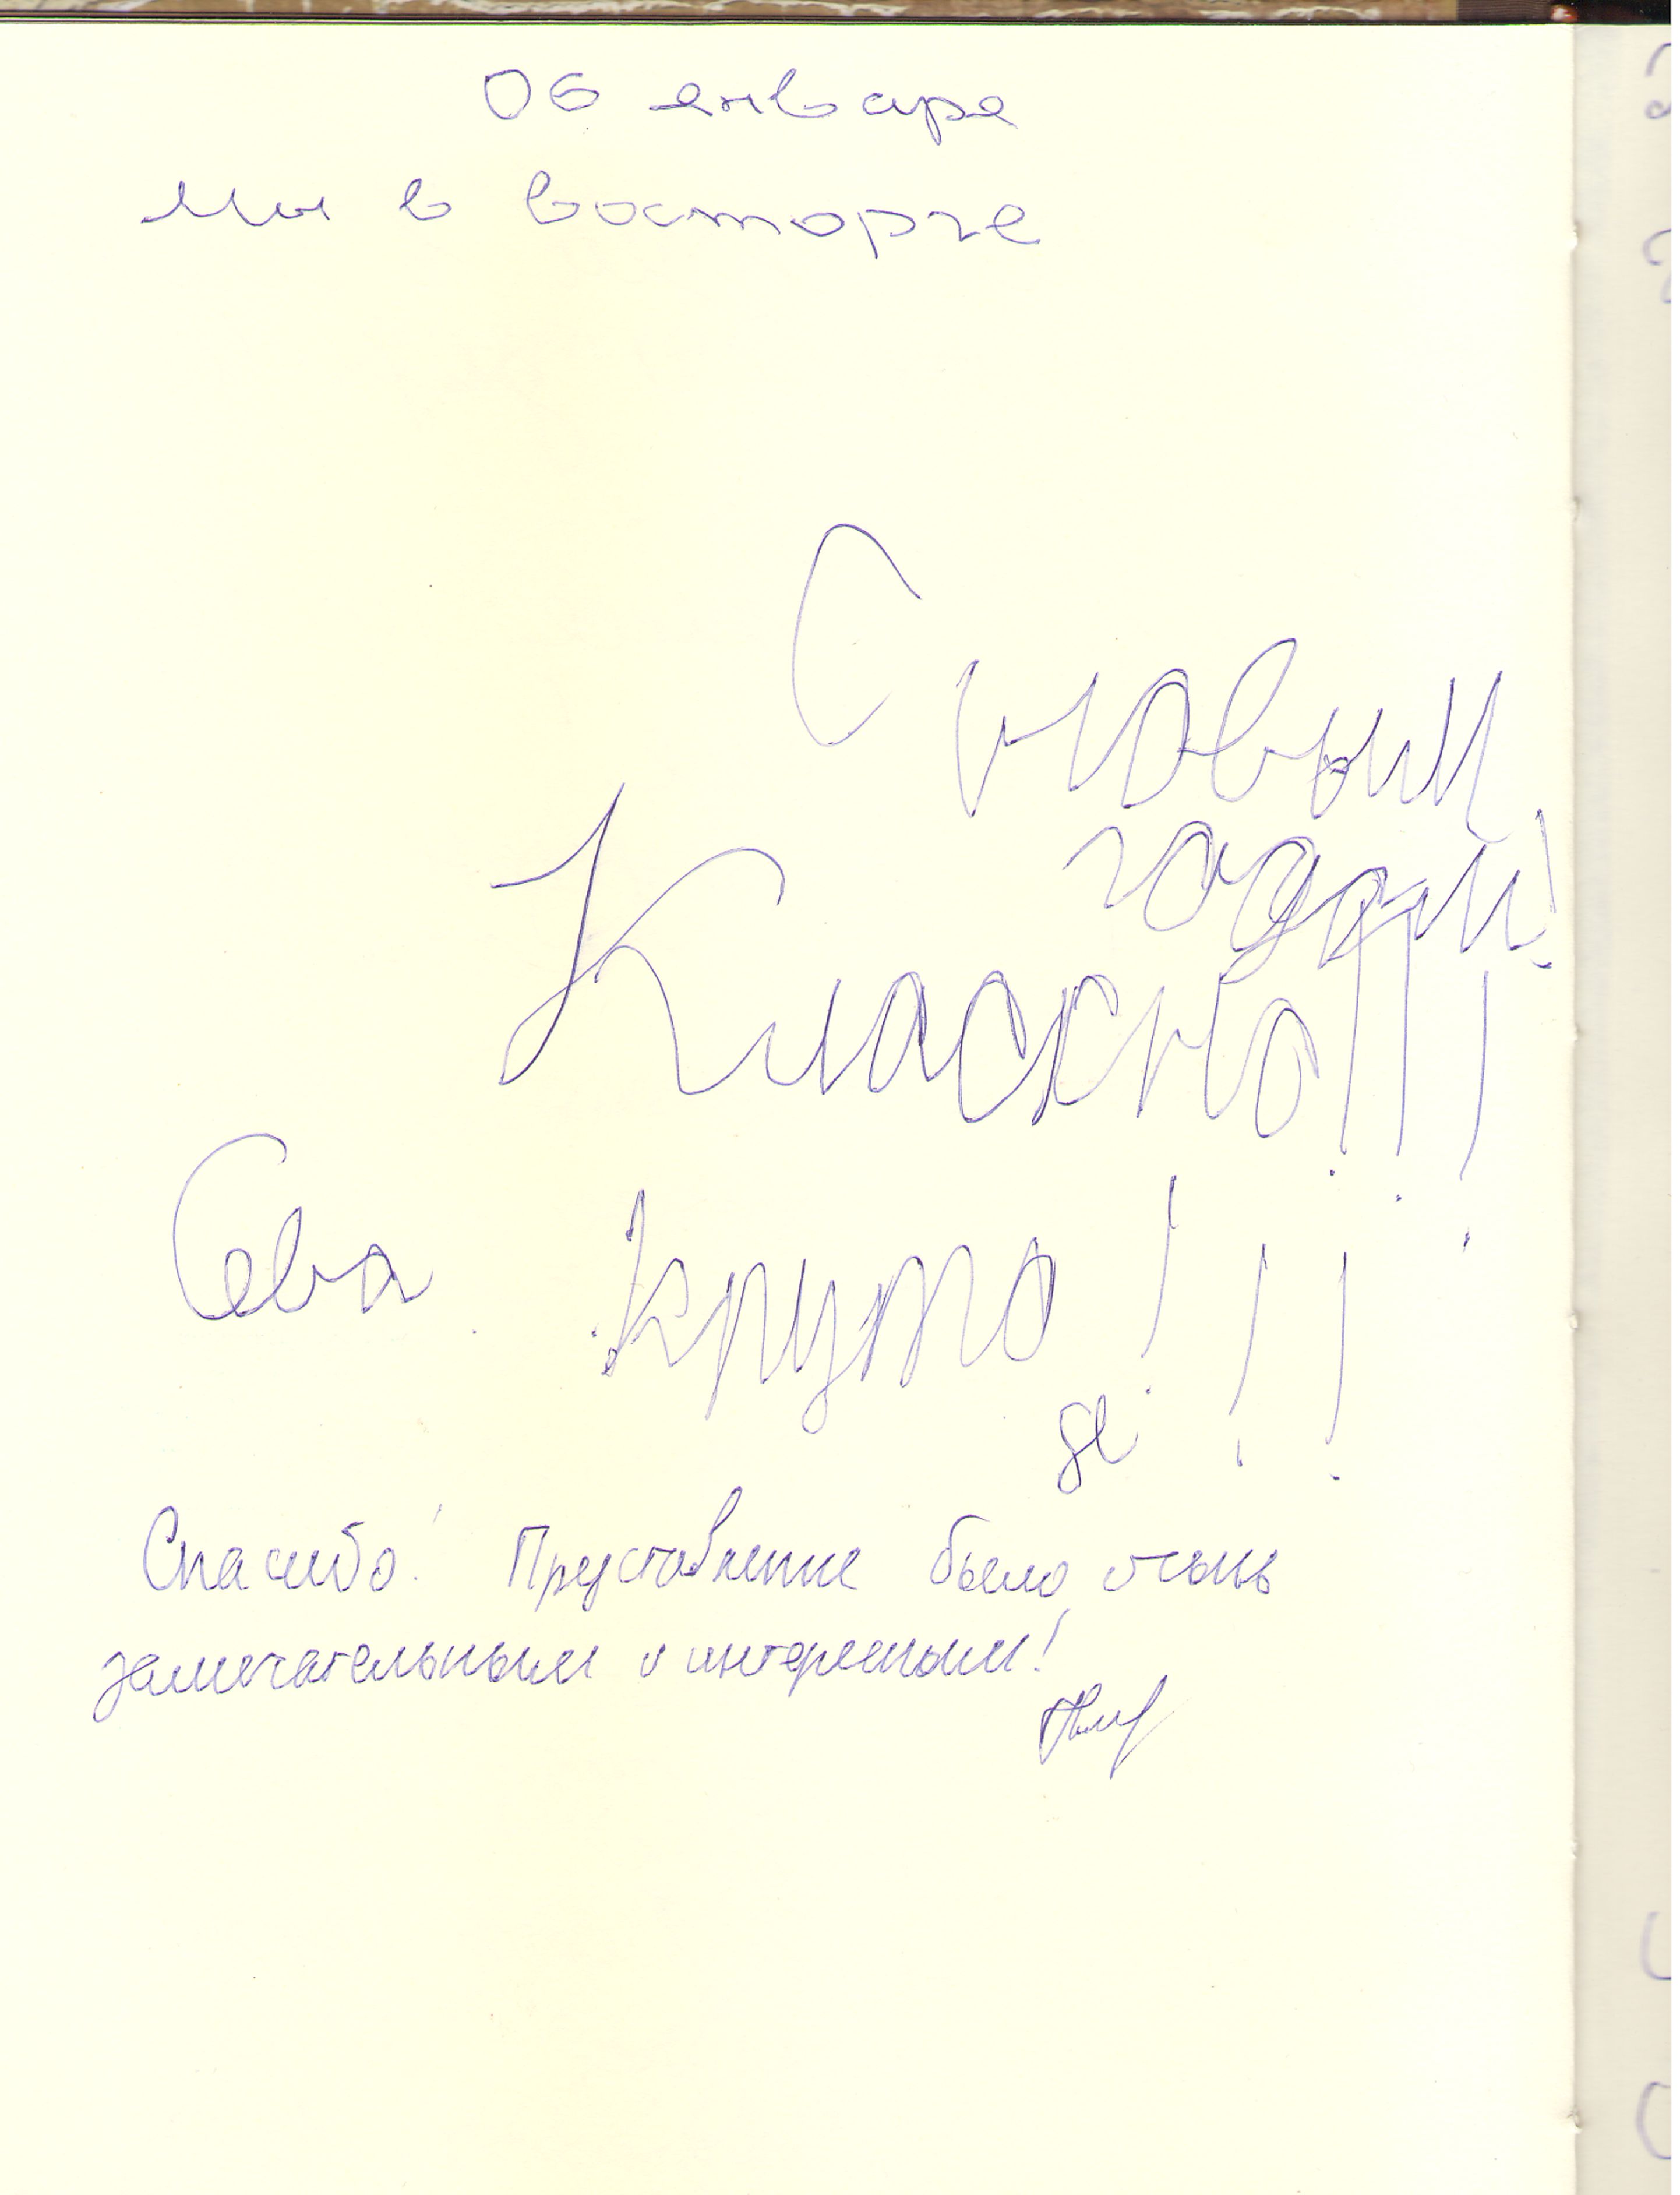 06 января
мы в восторге
С новым
годом!
Класско!!!
Сева круто!!!
Спасибо! Представление было очень
замечательным и интересным!